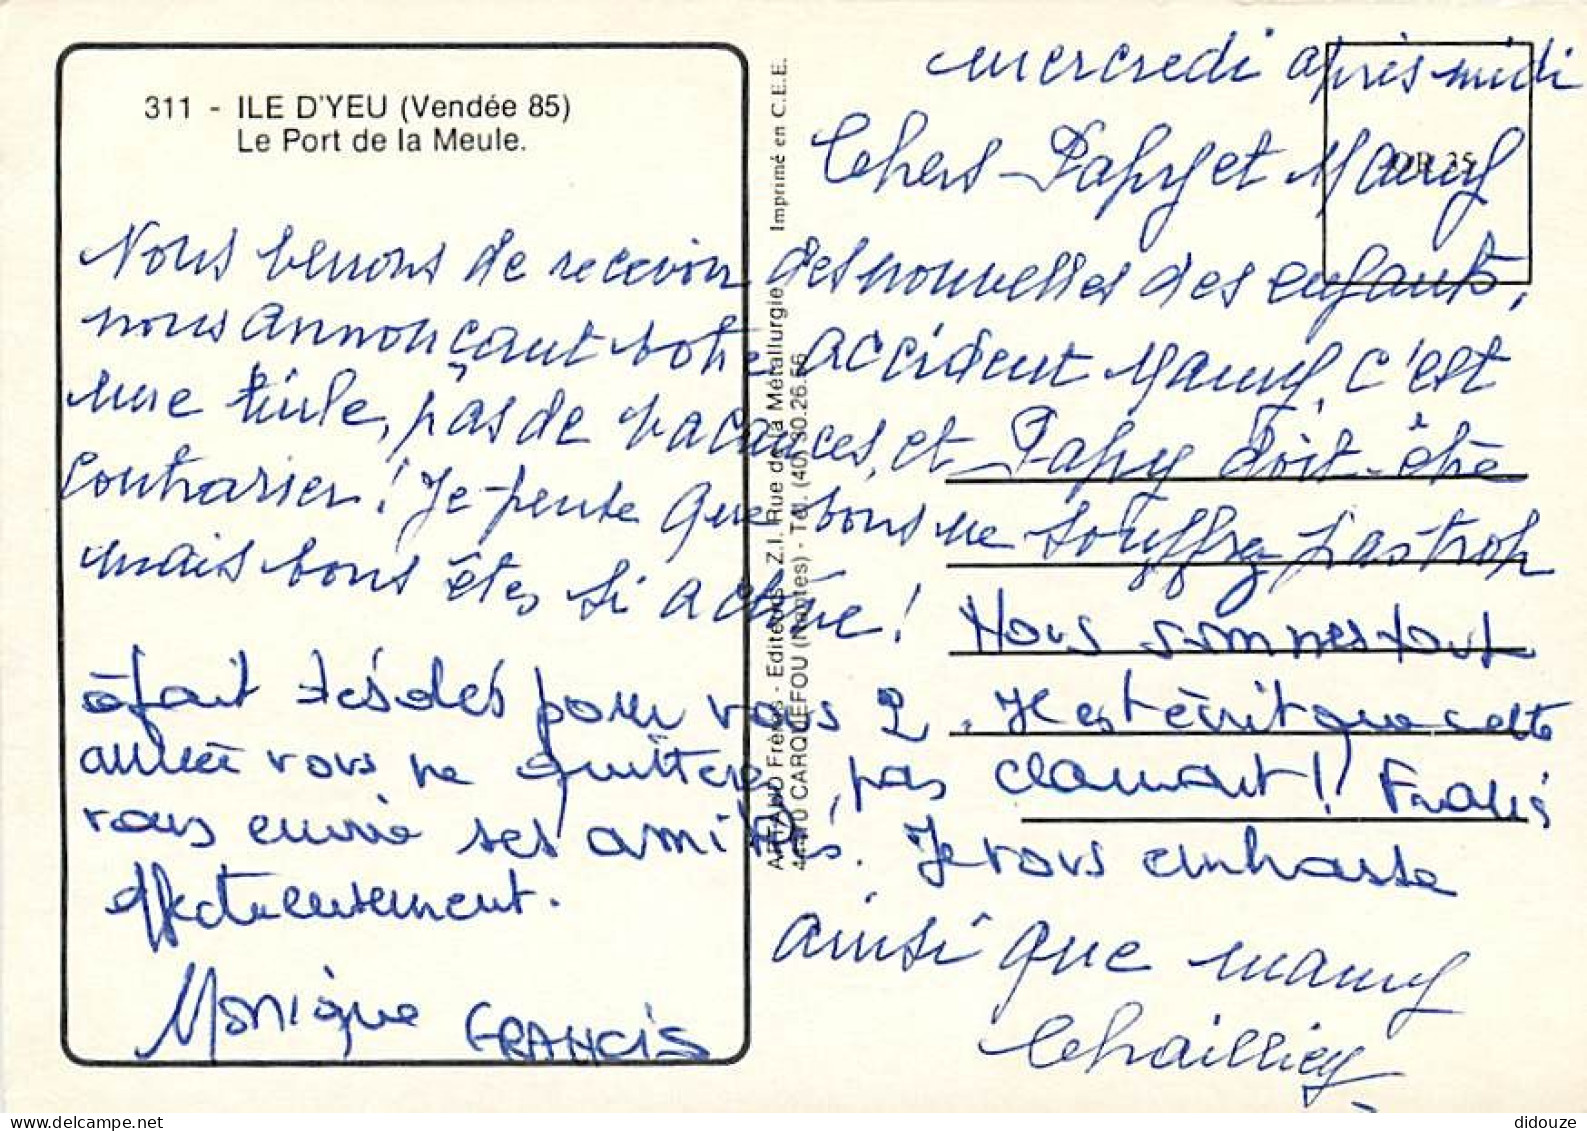 mercredi après midi
311 - ILE D'YEU (Vendée 85)
Le Port de la Meule.
Imprimé en C.E.E.
ARTAUD Frères - Editeurs - Z.I. Rue de la Métallurgie
44470 CARQUEFOU (Nantes) - Tél. (40) 30.26.56
35
Chers Papy et Mamy
Nous venons de recevoir des nouvelles des enfants,
nous annonçant votre accident Mamy, c'est
une tuile, pas de vacances, et Papy doit être
contrarier! Je pense que vous ne souffrez pas trop
mais vous êtes si active! Nous sommes tout
à fait désolés pour vous 2. Il est écrit que cette
année vous ne quitterez pas Clamart! Francis
vous envoie ses amitiés. Je vous embrasse
affectueusement.
ainsi que mamy
Chailliey
Monique FRANCIS
didouze